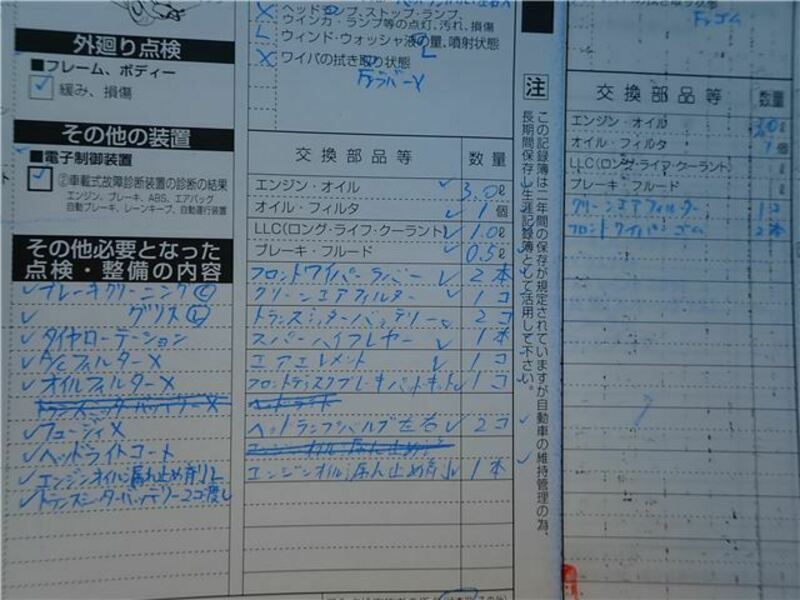 外廻り点検
■フレーム、ボディー
緩み、損傷
その他の装置
■電子制御装置
②車載式故障診断装置の診断の結果
エンジン、ブレーキ、ABS、エアバッグ
自動ブレーキ、レーンキープ、自動運行装置
その他必要となった
点検・整備の内容
ブレーキクリーニングⒸ
グリスⓁ
タイヤローテーション
A/CフィルターX
オイルフィルターX
トランスミッターバッテリーX
ヘッドライトコート
エンジンオイル漏れ止め剤L
トランスミッターバッテリー2コ渡し
ヘッドランプ、ストップ・ランプ、
ウインカ・ランプ等の点灯、汚れ、損傷
L ウィンド・ウォッシャ液の量、噴射状態
X ワイパの拭き取り状態
交換部品等 数量
エンジン・オイル 3.0ℓ
オイル・フィルタ 1個
LLC(ロング・ライフ・クーラント) 1.0ℓ
ブレーキ・フルード 0.5ℓ
フロントワイパーラバー 2本
クリーンエアフィルター 1コ
トランスミッターバッテリー 2コ
1本
エアエレメント 1コ
フロントディスクブレーキパットキット 1コ
ヘッドランプバルブ左右 2コ
エンジンオイル漏れ止め剤 1本
注
この記録簿は二年間の保存が規定されていますが自動車の維持管理の為、
長期間保存し生涯記録簿として活用して下さい。
Frゴム
交換部品等 数量
エンジン・オイル 3.0ℓ
オイル・フィルタ 1個
LLC(ロング・ライフ・クーラント)
ブレーキ・フルード
クリーンエアフィルター 1コ
フロントワイパーゴム 2本